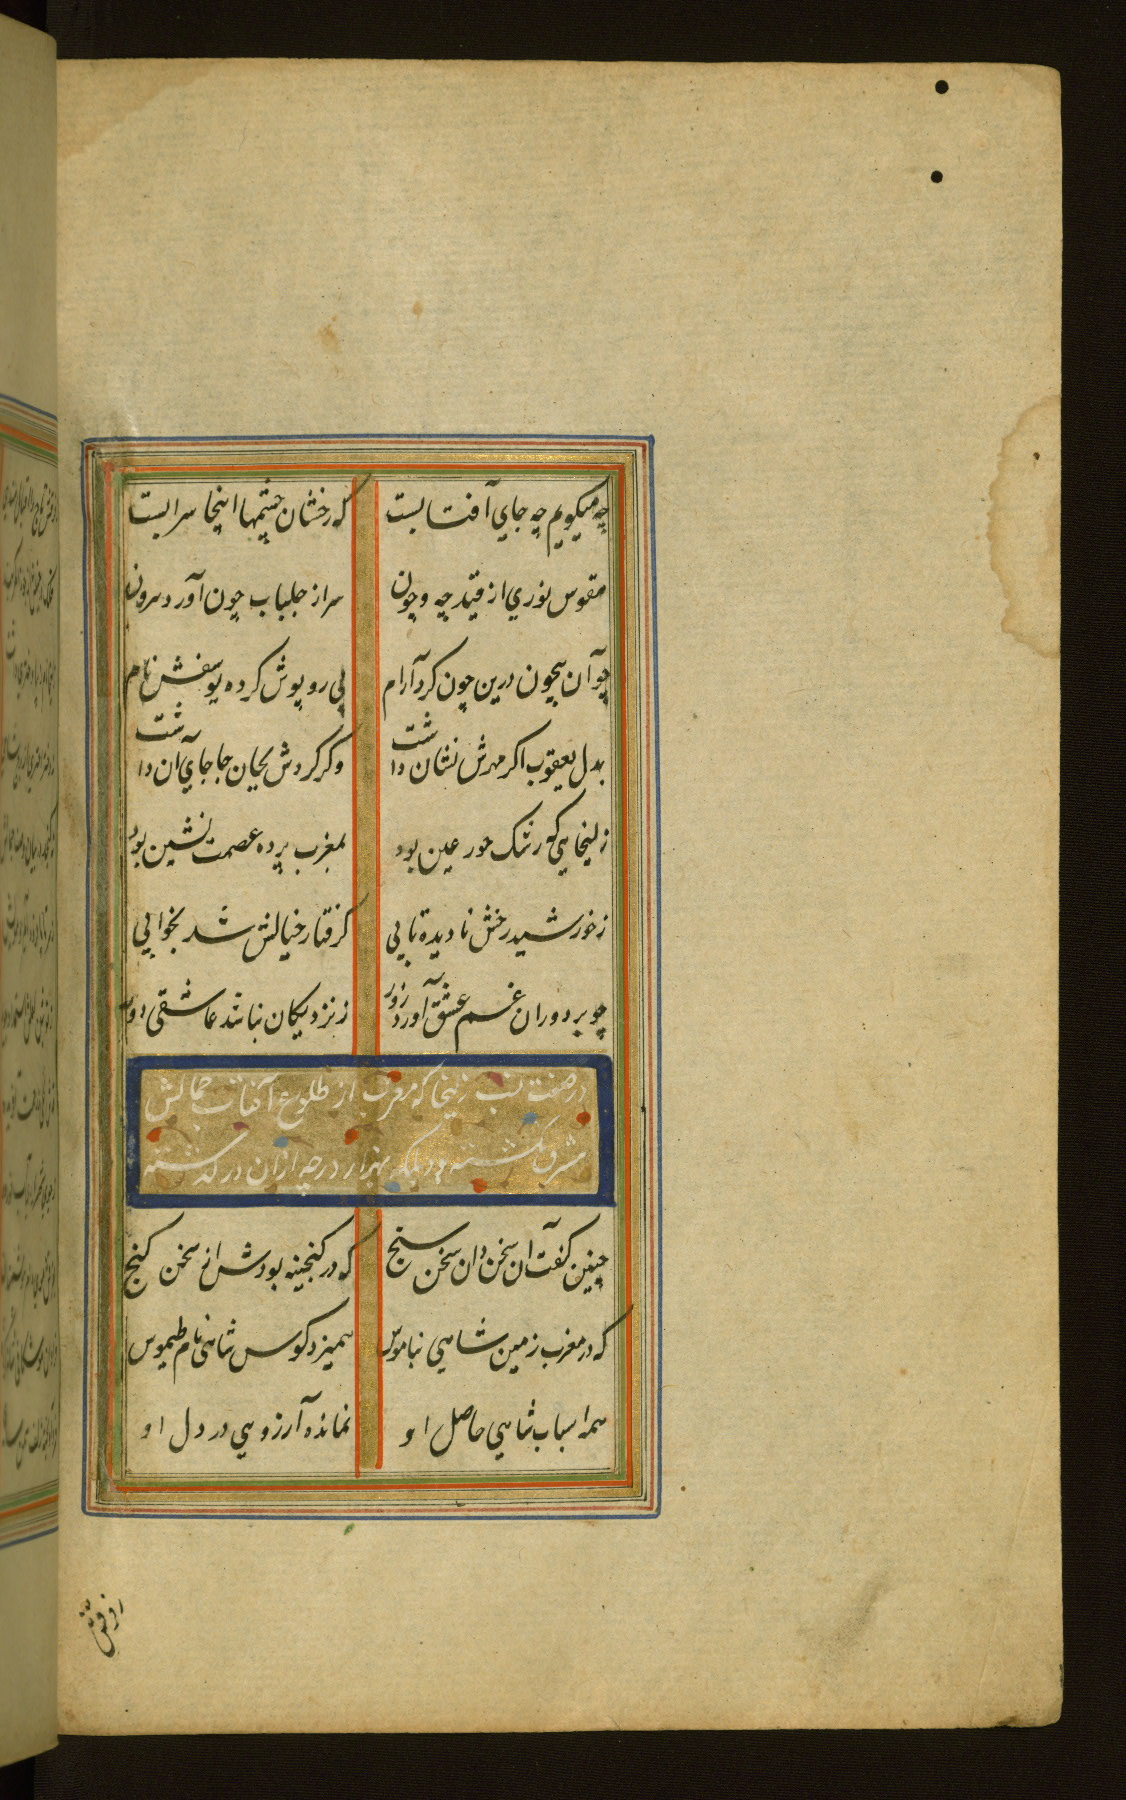 چه میکویم چه جاي آفتابست که رخشان چشمها اینجا سرابست
مقوس نوري از قید چه و چون سر از جلباب چون آورد برون
چو آن بیچون درین چون کرد آرام پی روپوش کرده یوسفش نام
بدل یعقوب اکر مهرش نشان داشت وکر کردش بجان جا جاي آن داشت
زلیخایي که رشک حور عین بود بمغرب پرده عصمت نشین بود
ز خورشید رخش نادیده تابی کرفتار خیالش شد بخوابی
چو بر دوران غم عشق آورد زور ز نزدیکان نباشد عاشقی دور
در صفت نسب زلیخا که مغرب از طلوع آفتاب جمالش
مشرق کشته بود بلکه بهزار درجه ازان در کذشته
چنین کفت آن سخن دان سخن سنج که در کنجینه بودش از سخن کنج
که در مغرب زمین شاهي بناموس همیزد کوس شاهی نام طیموس
همه اسباب شاهي حاصل او نمانده آرزوي در دل او
ز فرقش